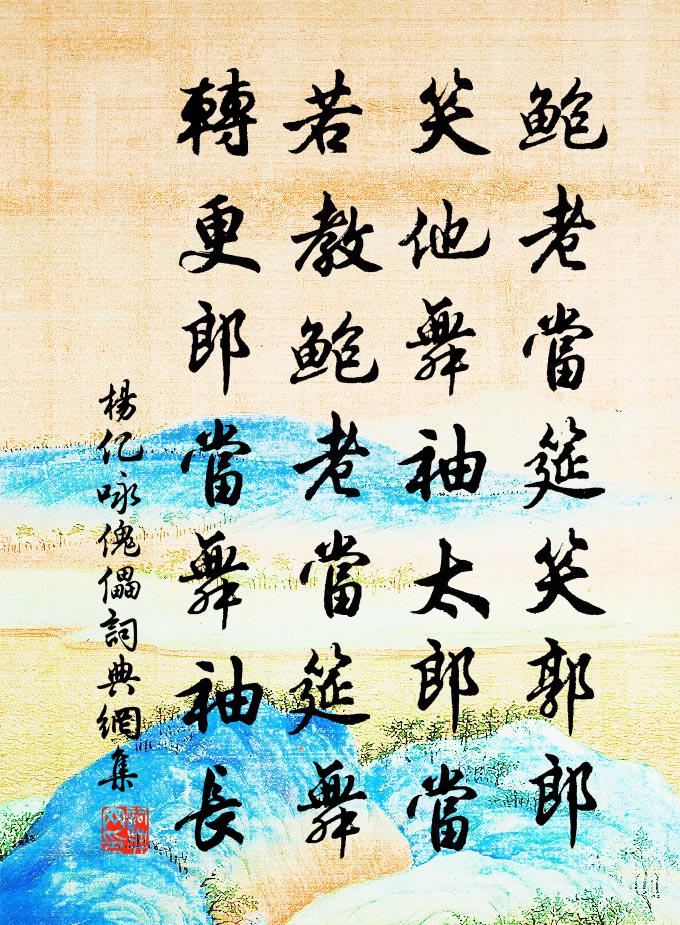 鮑老當筵笑郭郎
笑他舞袖太郎當
若教鮑老當筵舞
轉更郎當舞袖長
楊億咏傀儡詞典網集